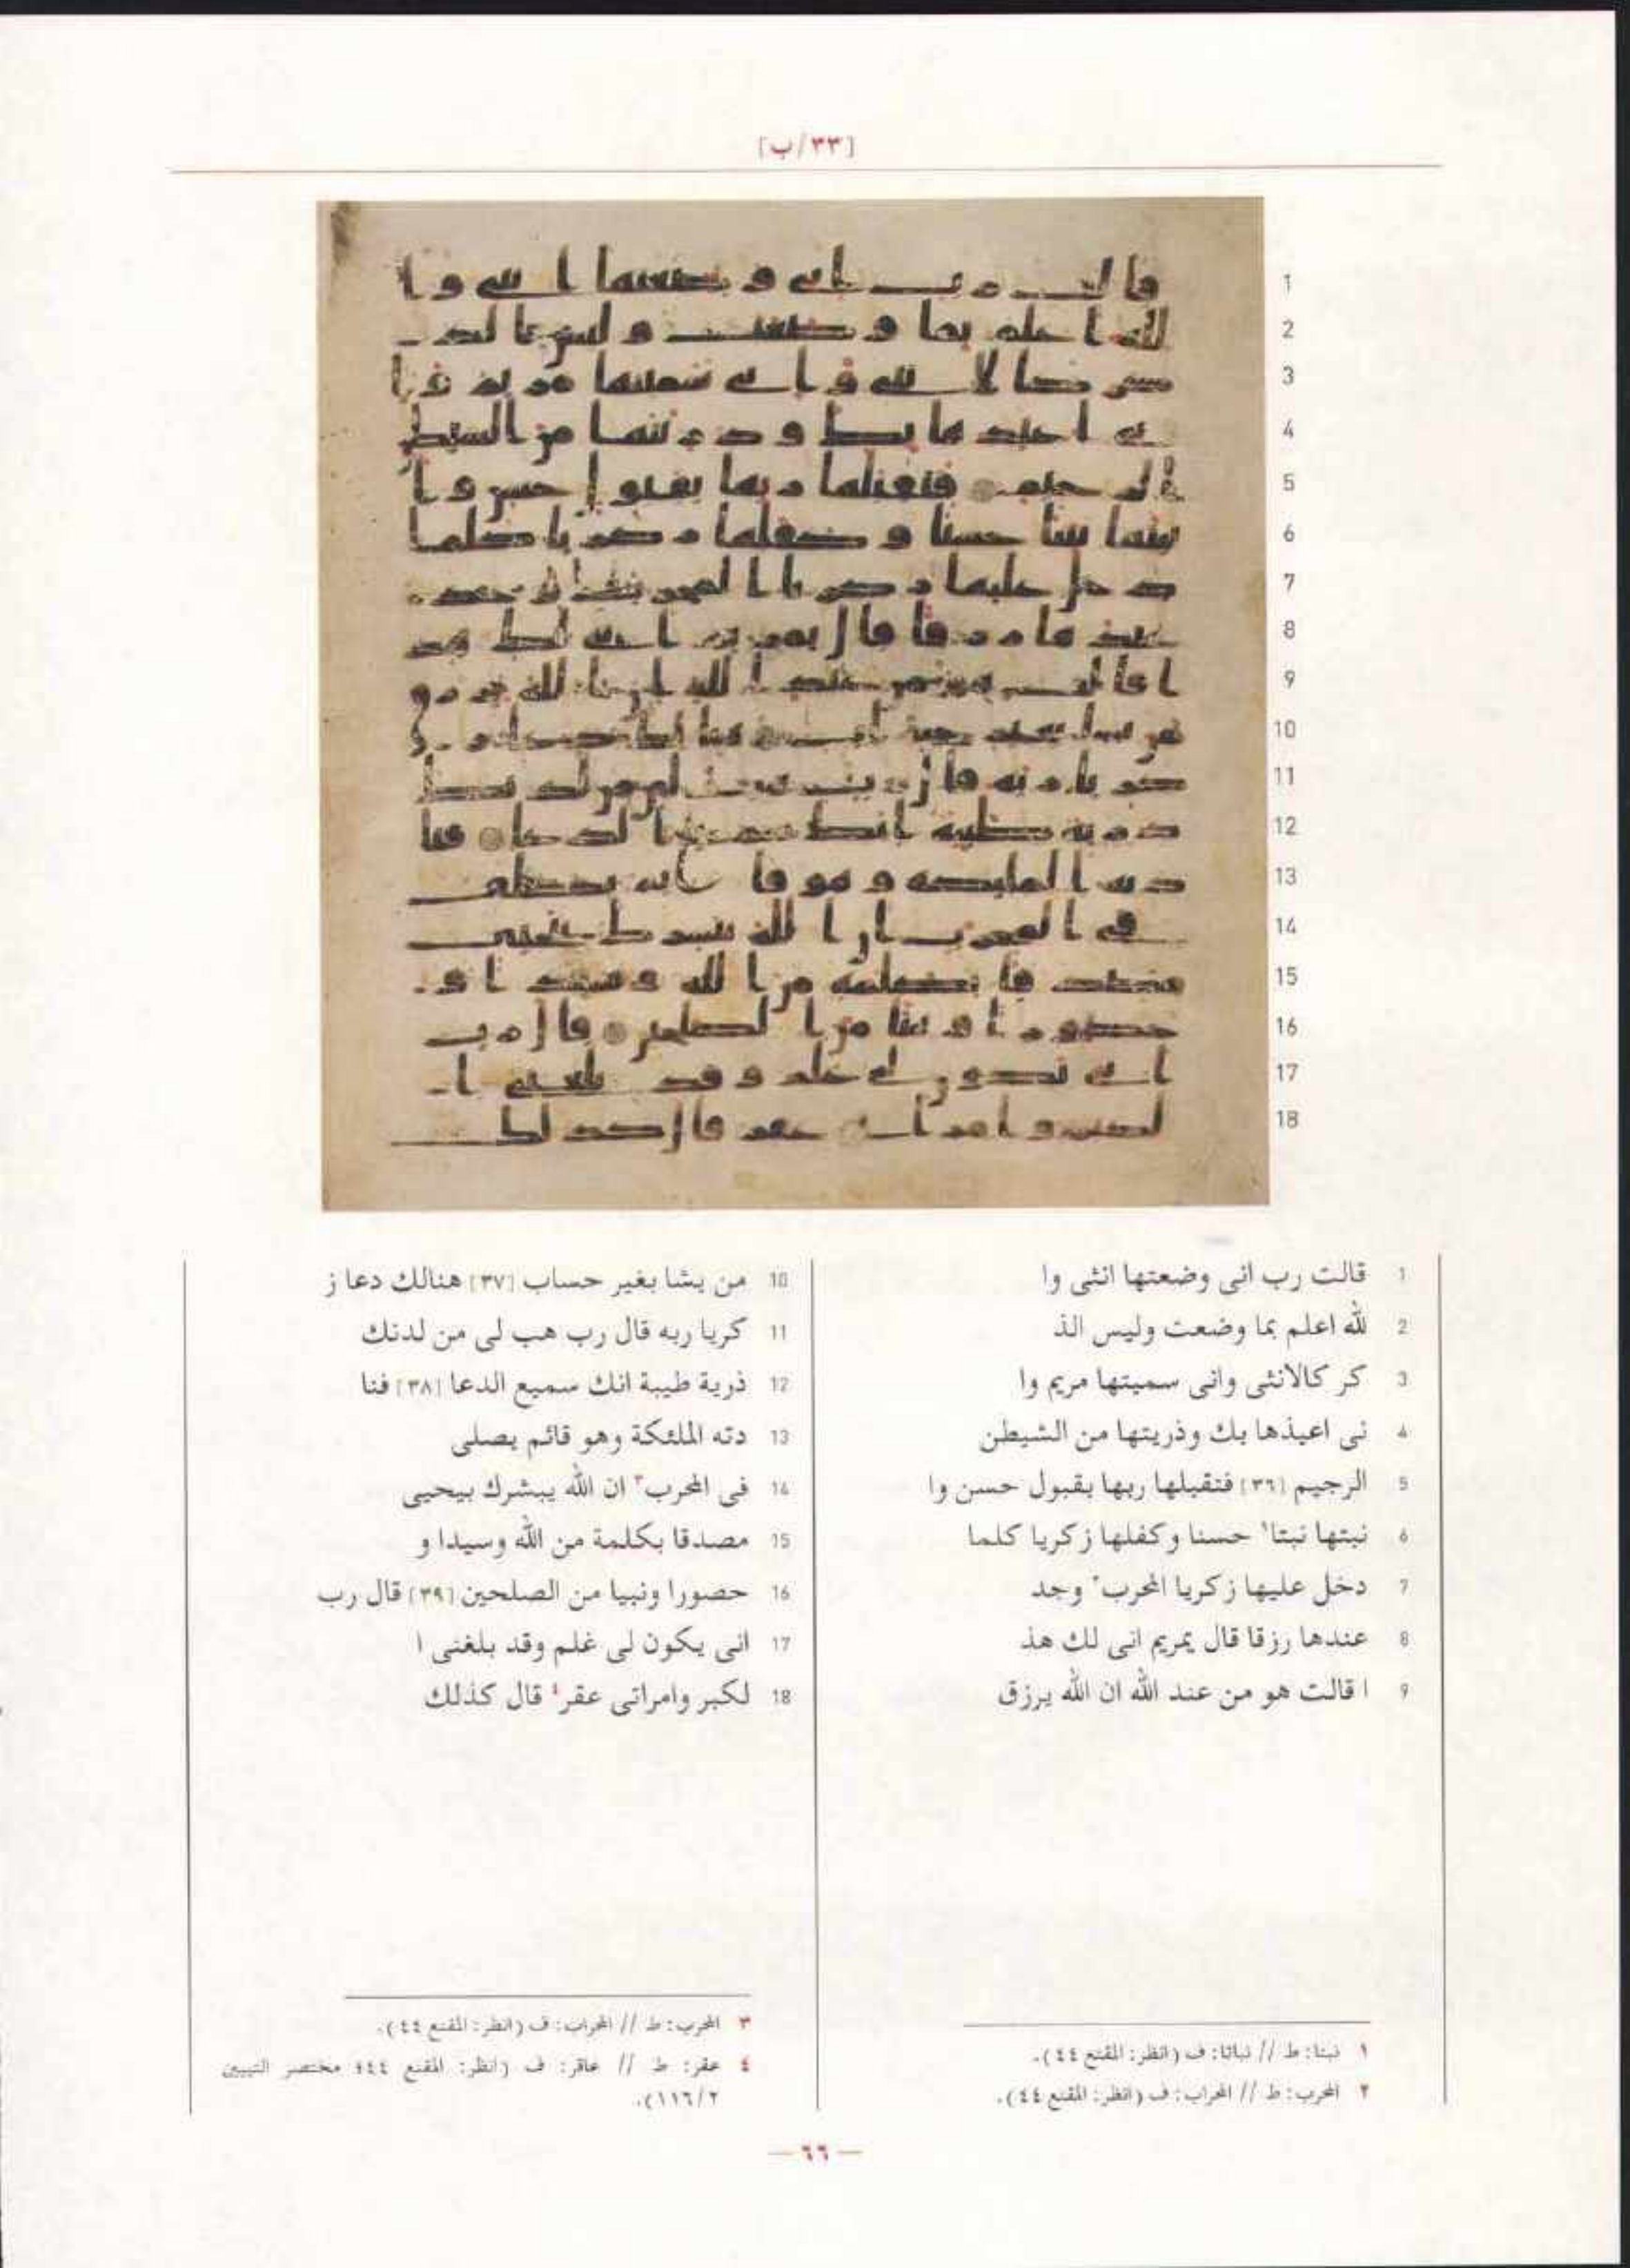 [٣٣/ب]
1 قالت رب انى وضعتها انثى وا
2 لله اعلم بما وضعت وليس الذ
3 كر كالانثى وانى سميتها مريم وا
4 نى اعيذها بك وذريتها من الشيطن
5 الرجيم [٣٦] فتقبلها ربها بقبول حسن وا
6 نبتها نبتا١ حسنا وكفلها زكريا كلما
7 دخل عليها زكريا المحرب٢ وجد
8 عندها رزقا قال يمريم انى لك هذ
9 ا قالت هو من عند الله ان الله يرزق
10 من يشا بغير حساب [٣٧] هنالك دعا ز
11 كريا ربه قال رب هب لى من لدنك
12 ذرية طيبة انك سميع الدعا [٣٨] فنا
13 دته الملئكة وهو قائم يصلى
14 فى المحرب٣ ان الله يبشرك بيحيى
15 مصدقا بكلمة من الله وسيدا و
16 حصورا ونبيا من الصلحين [٣٩] قال رب
17 انى يكون لى غلم وقد بلغنى ا
18 لكبر وامراتى عقر٤ قال كذلك
١ نبتا: ط // نباتا: ف (انظر: المقنع ٤٤).
٢ المحرب: ط // المحراب: ف (انظر: المقنع ٤٤).
٣ المحرب: ط // المحراب: ف (انظر: المقنع ٤٤).
٤ عقر: ط // عاقر: ف (انظر: المقنع ٤٤؛ مختصر التبيين
١١٦/٢).
— ٦٦ —